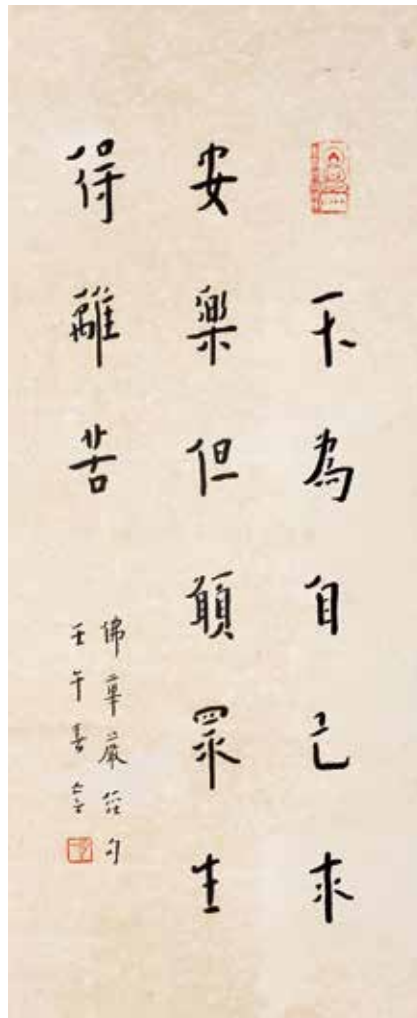 不為自己求
安樂但願眾生
得離苦
佛華嚴經句
壬午